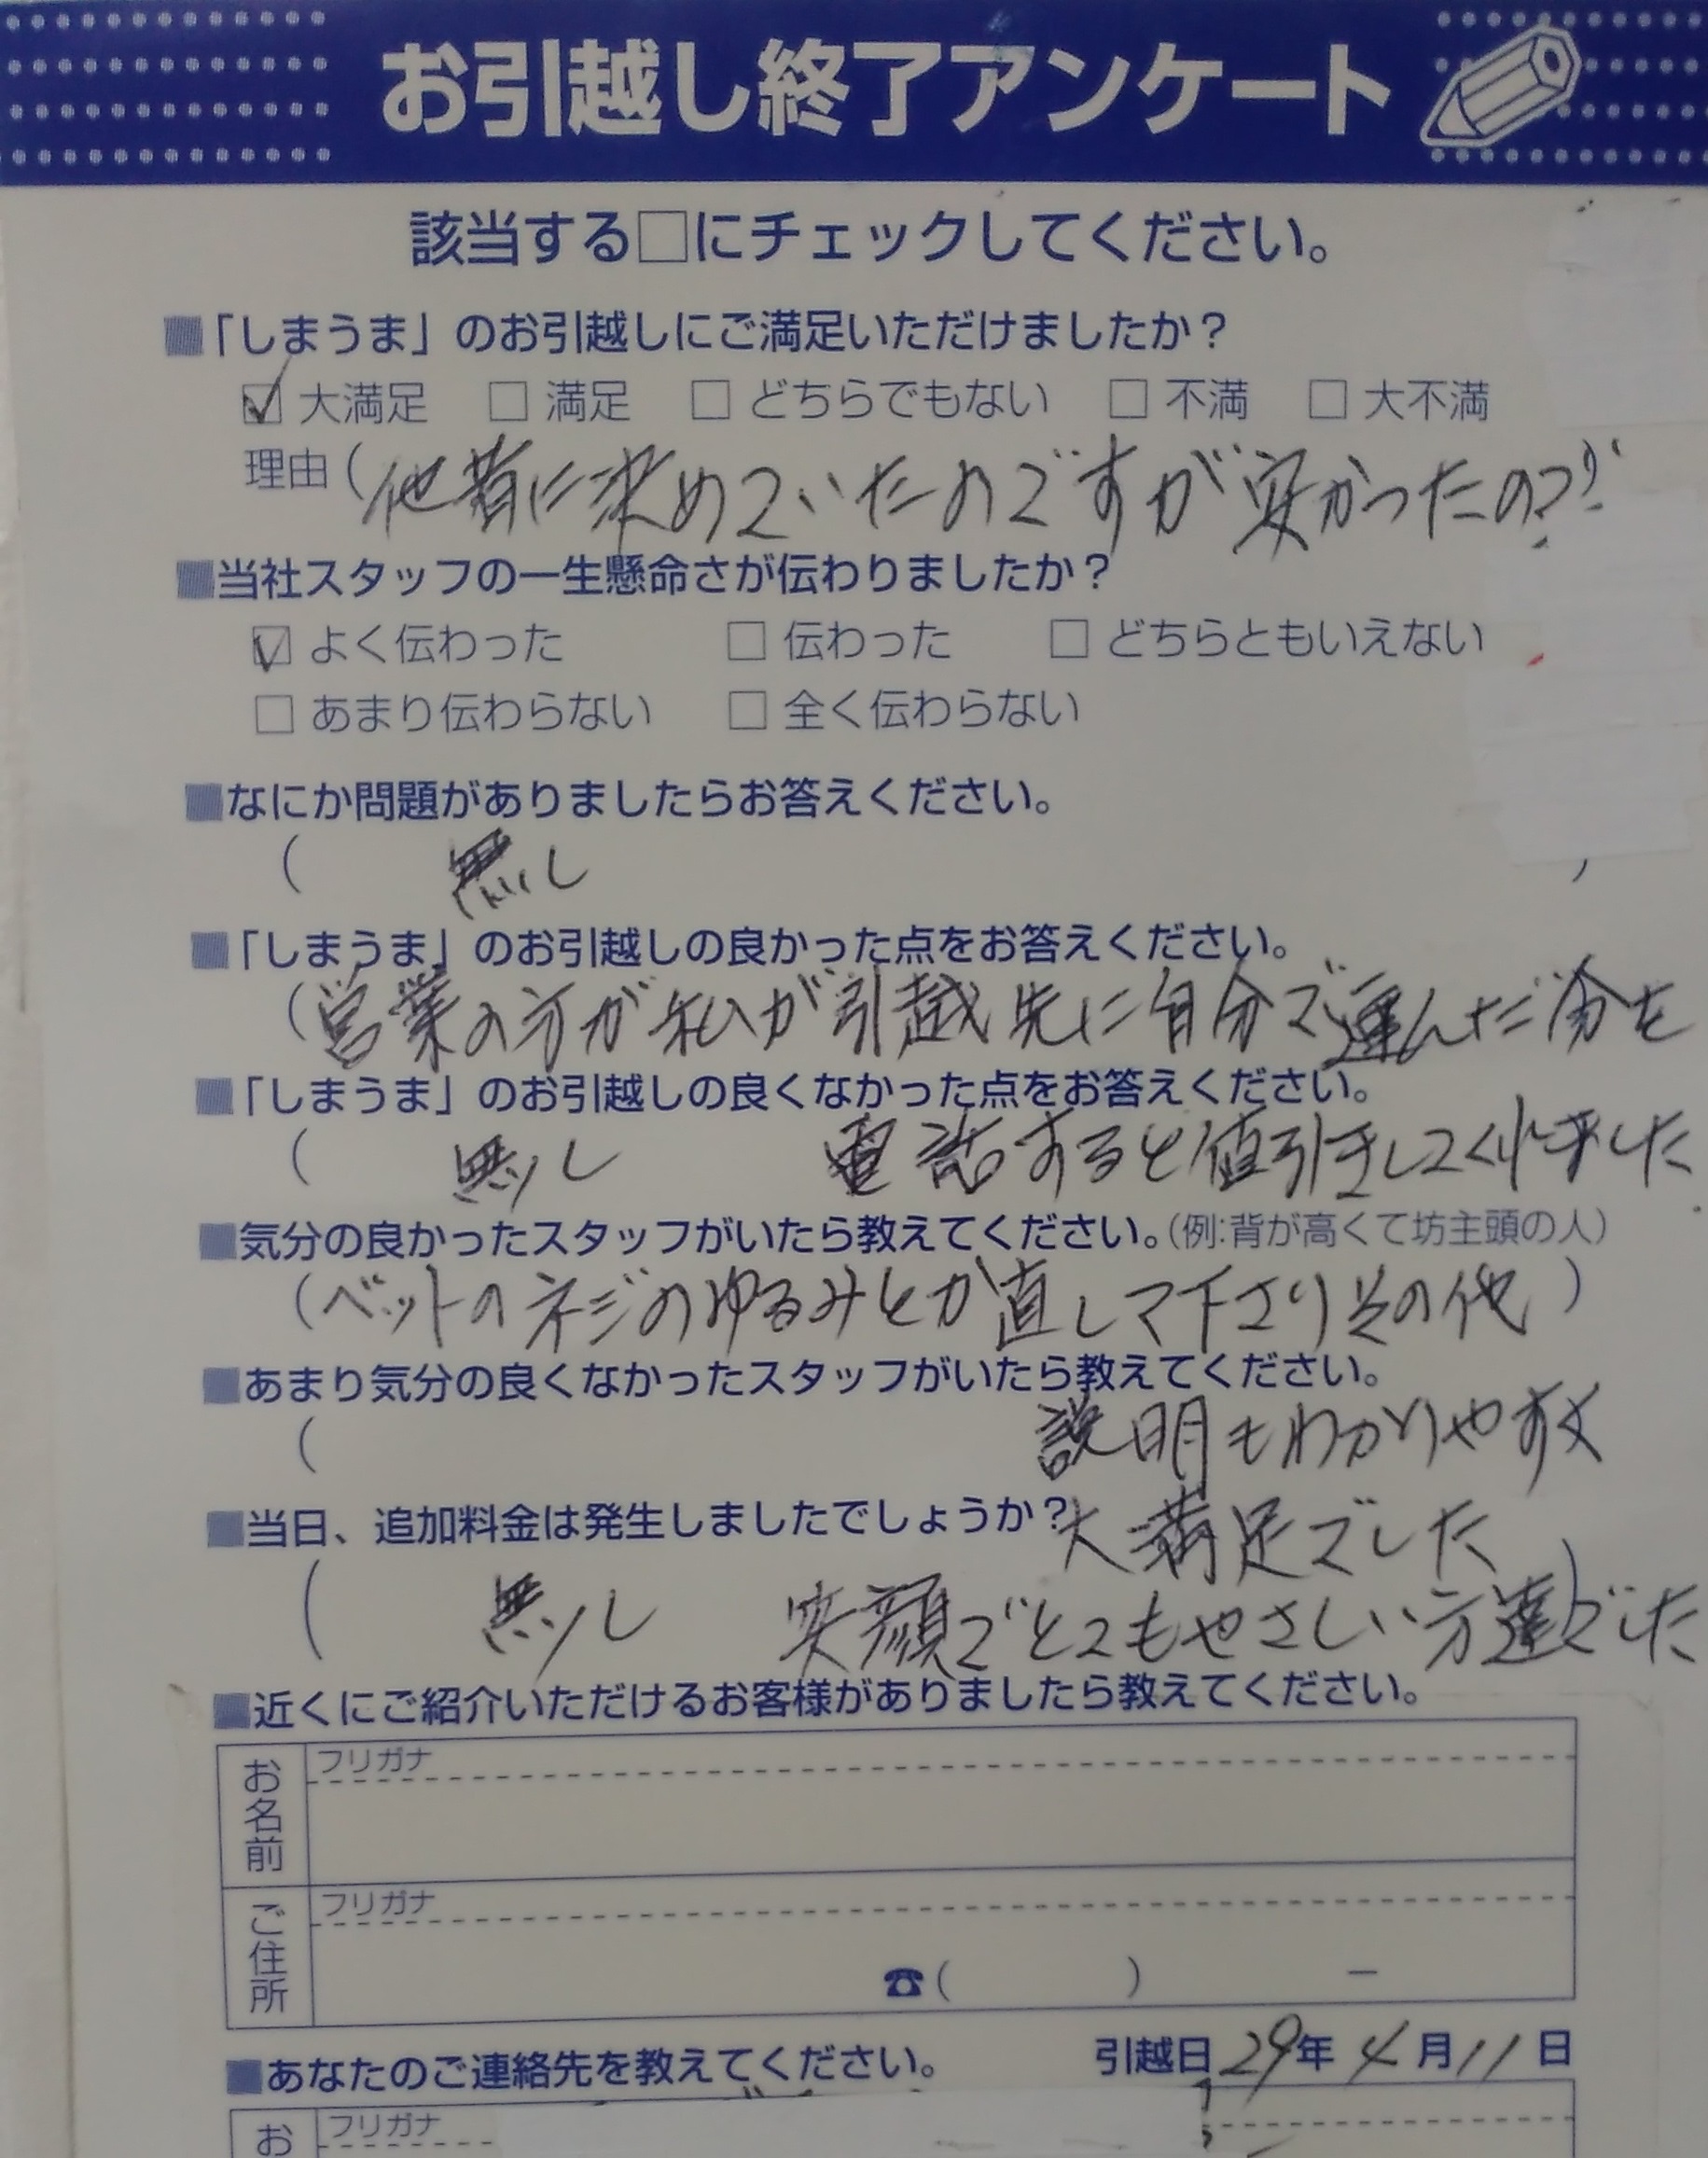 お引越し終了アンケート
該当する□にチェックしてください。
■「しまうま」のお引越しにご満足いただけましたか？
☑ 大満足 □ 満足 □ どちらでもない □ 不満 □ 大不満
理由（他者に決めていたのですが安かったので!
■当社スタッフの一生懸命さが伝わりましたか？
☑ よく伝わった □ 伝わった □ どちらともいえない
□ あまり伝わらない □ 全く伝わらない
■なにか問題がありましたらお答えください。
（ 無し ）
■「しまうま」のお引越しの良かった点をお答えください。
（営業の方が私が引越先に自分で運んだ分を
■「しまうま」のお引越しの良くなかった点をお答えください。
（ 無し 電話すると値引きしてくれました
■気分の良かったスタッフがいたら教えてください。（例:背が高くて坊主頭の人）
（ベットのネジのゆるみとか直して下さりその他）
■あまり気分の良くなかったスタッフがいたら教えてください。
（ 説明もわかりやすく
■当日、追加料金は発生しましたでしょうか？大満足でした
（ 無し 笑顔でとてもやさしい方達でした
■近くにご紹介いただけるお客様がありましたら教えてください。
お名前 フリガナ
ご住所 フリガナ
☎（ ） −
■あなたのご連絡先を教えてください。 引越日29年4月11日
お フリガナ